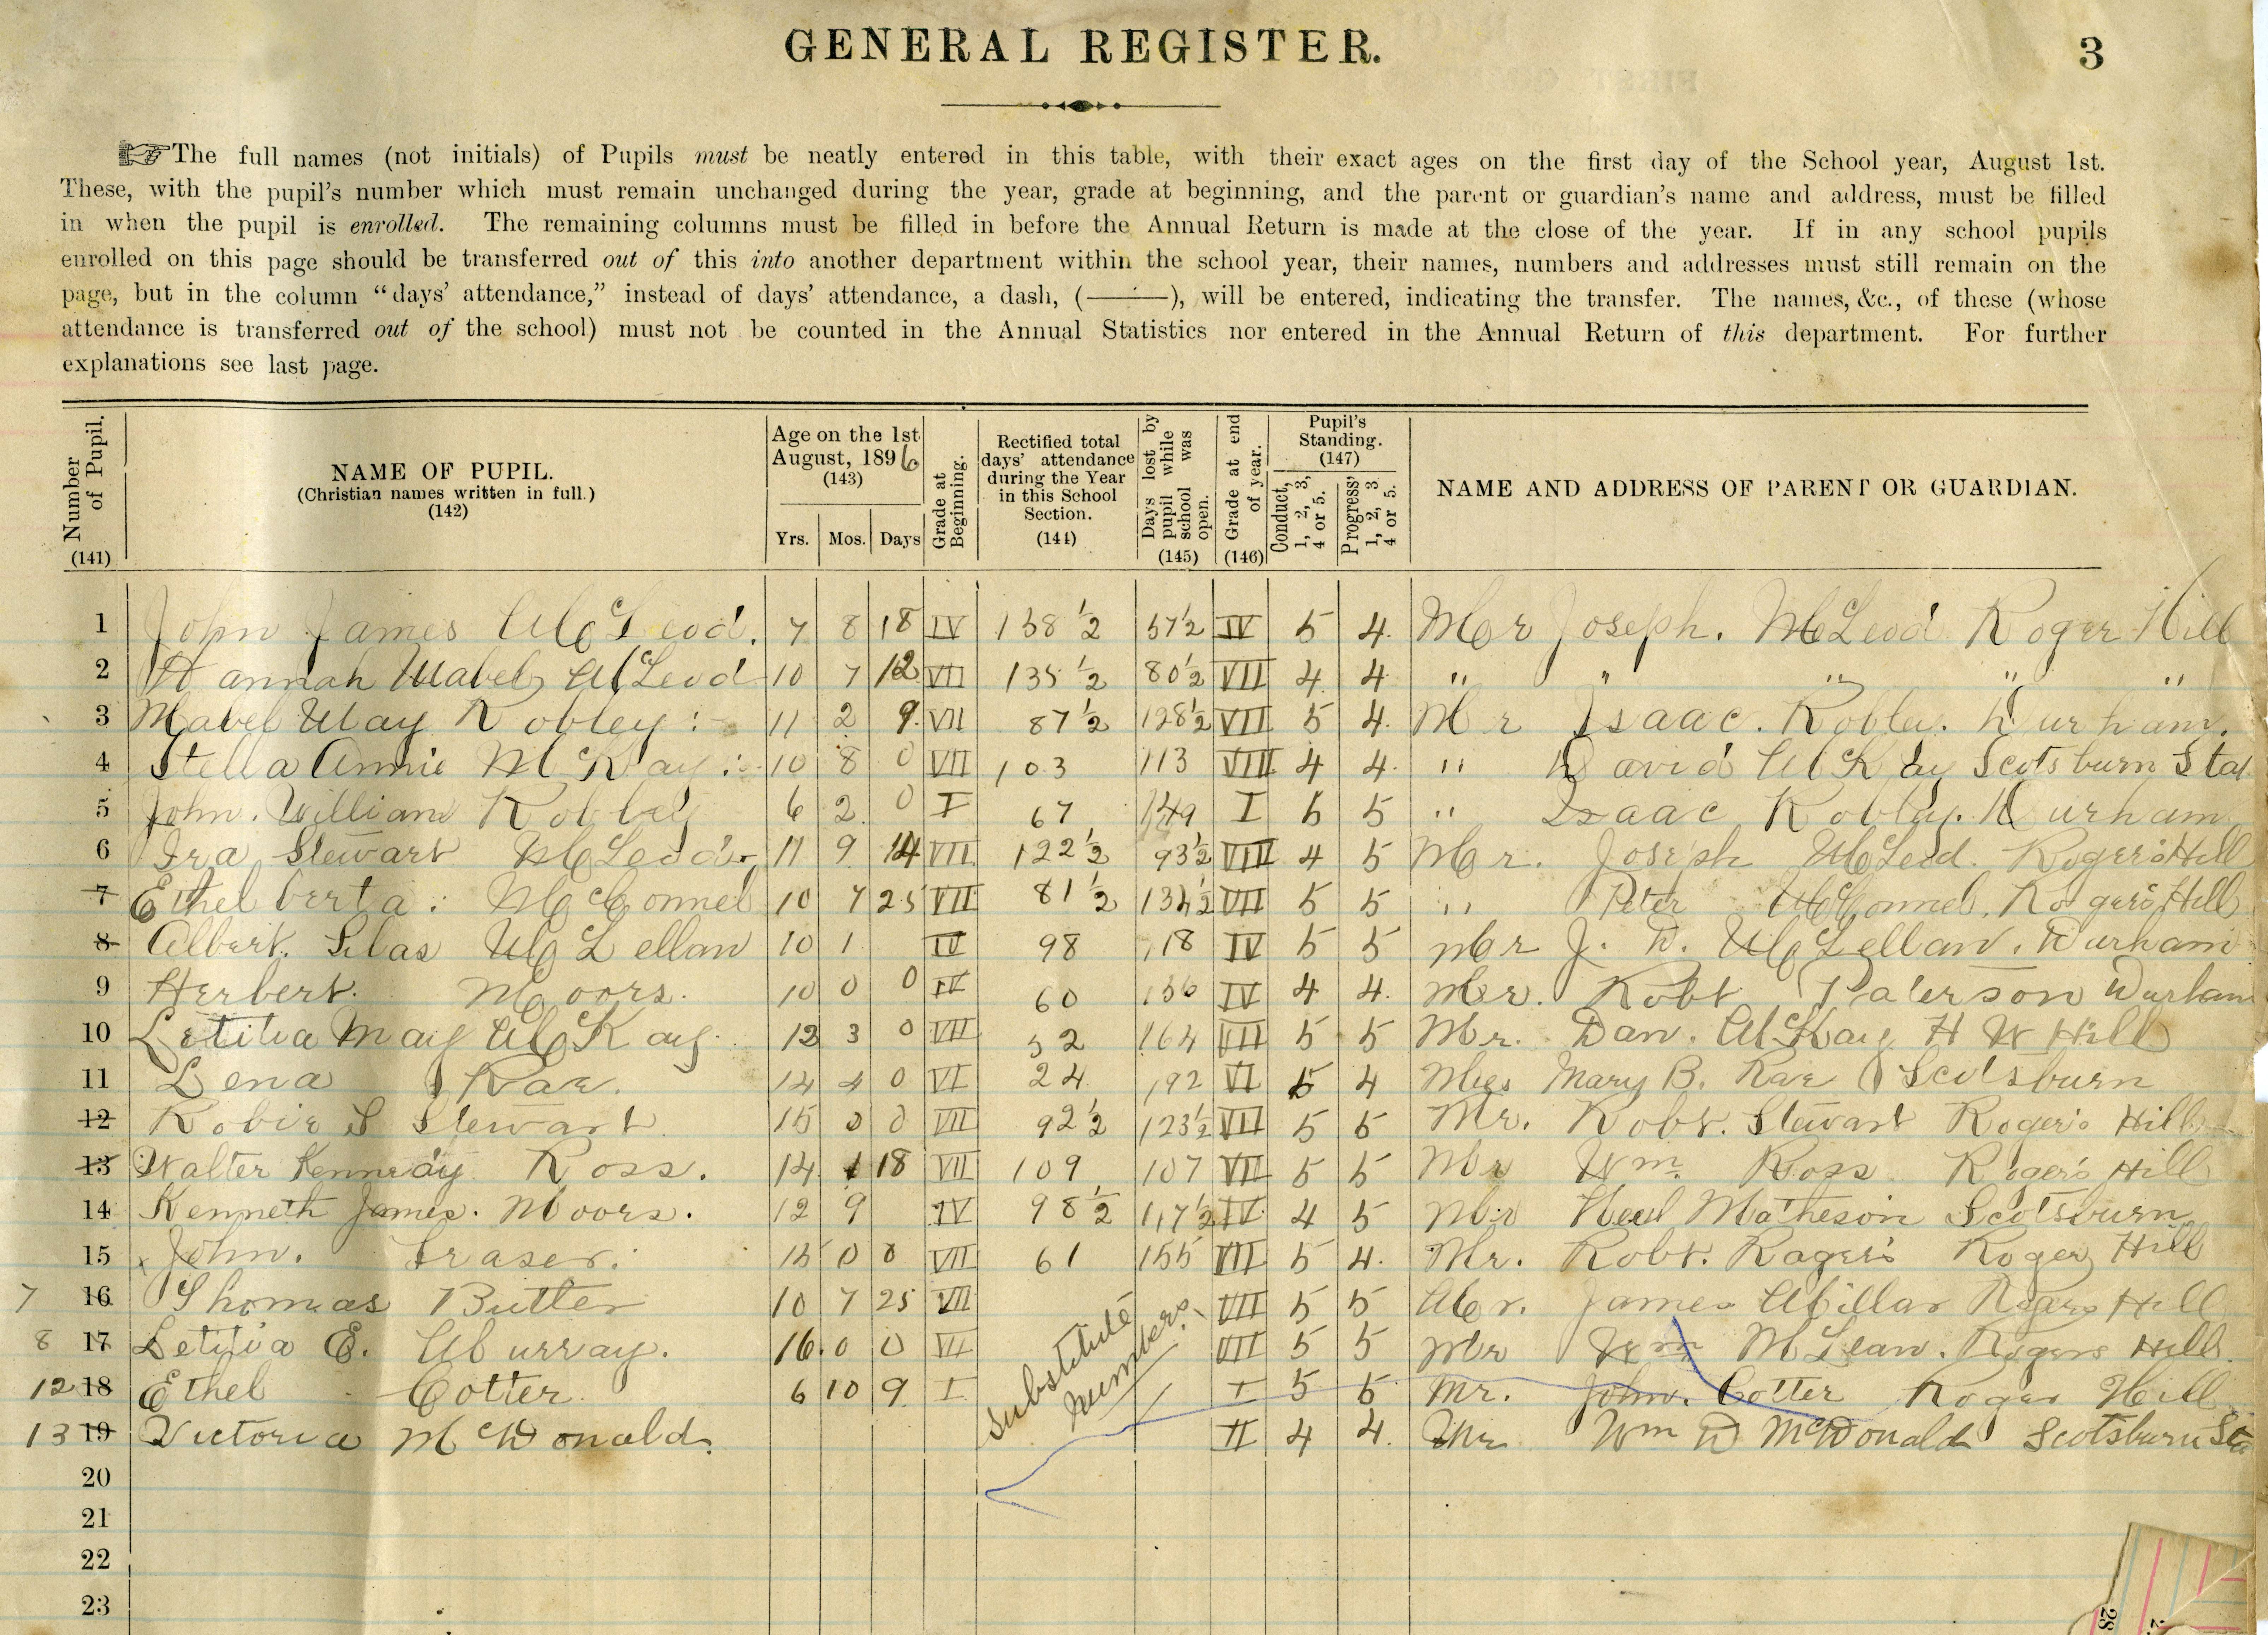 GENERAL REGISTER.
3
☞The full names (not initials) of Pupils must be neatly entered in this table, with their exact ages on the first day of the School year, August 1st.
These, with the pupil's number which must remain unchanged during the year, grade at beginning, and the parent or guardian's name and address, must be filled
in when the pupil is enrolled. The remaining columns must be filled in before the Annual Return is made at the close of the year. If in any school pupils
enrolled on this page should be transferred out of this into another department within the school year, their names, numbers and addresses must still remain on the
page, but in the column “days' attendance,” instead of days' attendance, a dash, (———), will be entered, indicating the transfer. The names, &c., of these (whose
attendance is transferred out of the school) must not be counted in the Annual Statistics nor entered in the Annual Return of this department. For further
explanations see last page.
Number of Pupil. (141)
NAME OF PUPIL.
(Christian names written in full.)
(142)
Age on the 1st
August, 1896
(143)
Yrs. Mos. Days
Grade at Beginning.
Rectified total
days' attendance
during the Year
in this School
Section.
(144)
Days lost by pupil while school was open. (145)
Grade at end of year. (146)
Pupil's
Standing.
(147)
Conduct, 1, 2, 3, 4 or 5.
Progress, 1, 2, 3 4 or 5.
NAME AND ADDRESS OF PARENT OR GUARDIAN.
1 John James McLeod. 7 8 18 IV 158 1/2 57 1/2 IV 5 4. Mr Joseph. McLeod Roger Hill
2 Hannah Mabel McLeod 10 7 12 VII 135 1/2 80 1/2 VII 4 4 " " " " "
3 Mabel May Robley :- 11 2 9. VII 87 1/2 128 1/2 VII 5 4. Mr Isaac. Robley. Durham.
4 Stella Annie McKay :- 10 8 0 VII 103 113 VIII 4 4. " David McKay Scotsburn Stat
5 John. William Robley 6 2 0 I 67 149 I 5 5 " Isaac Robley. Durham
6 Ira Stewart McLeod.- 11 9 14 VII 122 1/2 93 1/2 VIII 4 5 Mr. Joseph McLeod. Roger's Hill
7 Ethel berta : McConnel 10 7 25 VII 81 1/2 134 1/2 VII 5 5 " Peter McConnel. Roger's Hill
8 Albert. Silas McLellan 10 1 IV 98 118 IV 5 5 Mr J. D. McLellan. Durham
9 Herbert. Moors. 10 0 0 IV 60 156 IV 4 4. Mr. Robt Paterson Durham
10 Letitia May McKay. 12 3 0 VII 52 164 VII 5 5 Mr. Dan. McKay H W Hill
11 Lena Rae. 14 4 0 VI 24 192 VI 5 4 Miss Mary B. Rae Scotsburn
12 Robie S Stewart 15 0 0 VII 92 1/2 123 1/2 VII 5 5 Mr. Robt. Stewart Roger's Hill
13 Walter Kennedy Ross. 14 1 18 VII 109 107 VII 5 5 Mr Wm. Ross Roger's Hill
14 Kenneth James. Moors. 12 9 IV 98 1/2 117 1/2 IV 4 5 Mr Neil Matheson Scotsburn
15 John. Fraser. 15 0 0 VII 61 155 VII 5 4. Mr. Robt. Roger's Roger Hill
7 16 Thomas Butler 10 7 25 VII VII 5 5 Mr. James Millar Rogers Hill
8 17 Letitia E. Murray. 16. 0 0 VII VII 5 5 Mr Wm McLean. Rogers Hill
12 18 Ethel Cotter 6 10 9 I I 5 5 Mr. John. Cotter Roger Hill
13 19 Victoria McDonald. II 4 4 Mr Wm D McDonald Scotsburn Sta
substitute
numbers.
20
21
22
23
28